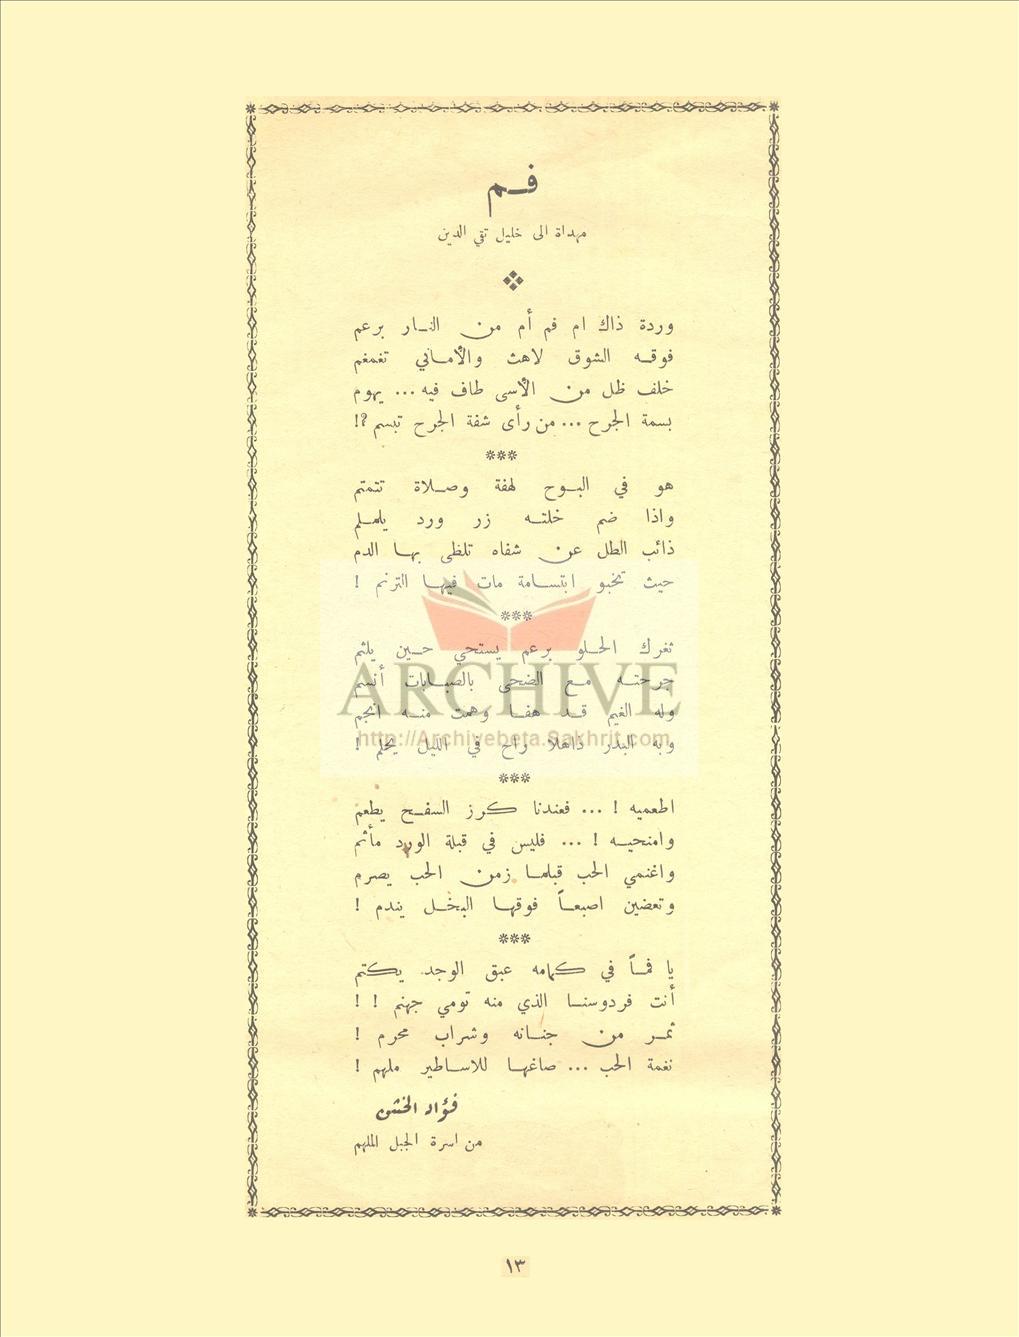 فـم
مهداة الى خليل تقي الدين
وردة ذاك ام فم أم من النـار برعم
فوقـه الشوق لاهث والأمـاني تغمغم
خلف ظل من الأسى طاف فيه ... يهوم
بسمة الجرح ... من رأى شفة الجرح تبسم ؟!
***
هو في البـوح لهفة وصـلاة تتمتم
واذا ضم خلتـه زر ورد يلملم
ذائب الطل عن شفاه تلظى بها الدم
حيث تخبو ابتسامة مات فيها الترنم !
***
ثغرك الحـلو برعم يستحي حـين يلثم
جرحتـه مـع الضحى بالصبـابات أنسم
وله الغيم قـد هفـا وهمت منـه انجم
وبه البدر ذاهلا راح في الليل يحلم !
***
اطعميه ! ... فعندنا كرز السفـح يطعم
وامنحيـه ! ... فليس في قبلة الورد مأثم
واغنمي الحب قبلمـا زمن الحب يصرم
وتعضين اصبعـاً فوقهـا البخـل يندم !
***
يا فمـاً في كمامه عبق الوجد يكتم
أنت فردوسنـا الذي منه تومي جهنم ! !
ثمـر من جنـانه وشراب محرم !
نغمة الحب ... صاغهـا للاسـاطير ملهم !
فؤاد الخشن
من اسرة الجبل الملهم
ARCHIVE
http://Archivebeta.Sakhrit.com
١٣